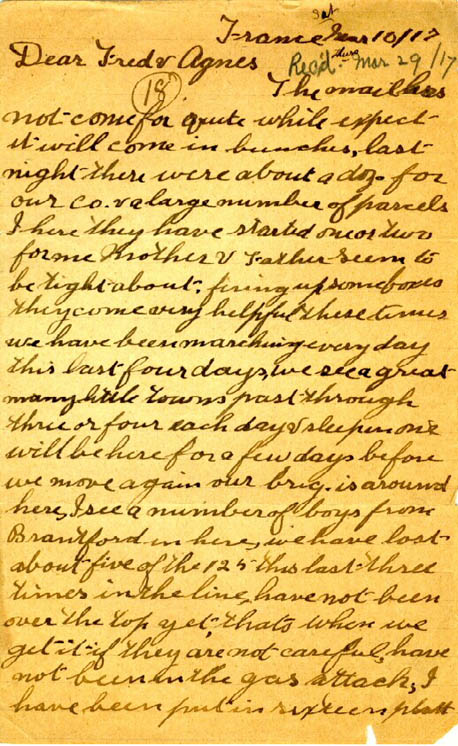 Sat
France Mar 10/17
Dear Fred & Agnes
Rec'd Thurs Mar 29/17
18
The mail has
not come for quite while expect
it will come in bunches, last
night there were about a doz. for
our co. & a large number of parcels
I here they have started one or two
for me Mother & Father seem to
be tight about, fixing up some boxes
they come very helpful these times
we have been marching every day
this last four days, we see a great
many little towns past through
three or four each day & sleep in one
will be here for a few days before
we move again our brig. is around
here, I see a number of boys from
Brantford in here, we have lost
about five of the 125th this last three
times in the line, have not been
over the top yet, thats when we
get it if they are not careful, have
not been in the gas attack, I
have been put in sixteen platt